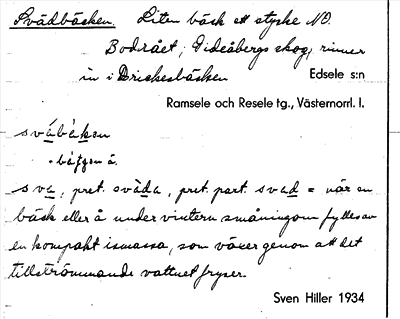 Svådbäcken. Liten bäck ett stycke NO.
Bodrået, Gideåbergs skog, rinner
in i Briskesbäcken
Edsele s:n
Ramsele och Resele tg., Västernorrl. l.
svåbäken
å.
sva, pret. svåda, pret. part. svad = när en
bäck eller å under vintern småningom fylles av
en kompakt ismassa, som växer genom att det
tillströmmande vattnet fryser.
Sven Hiller 1934